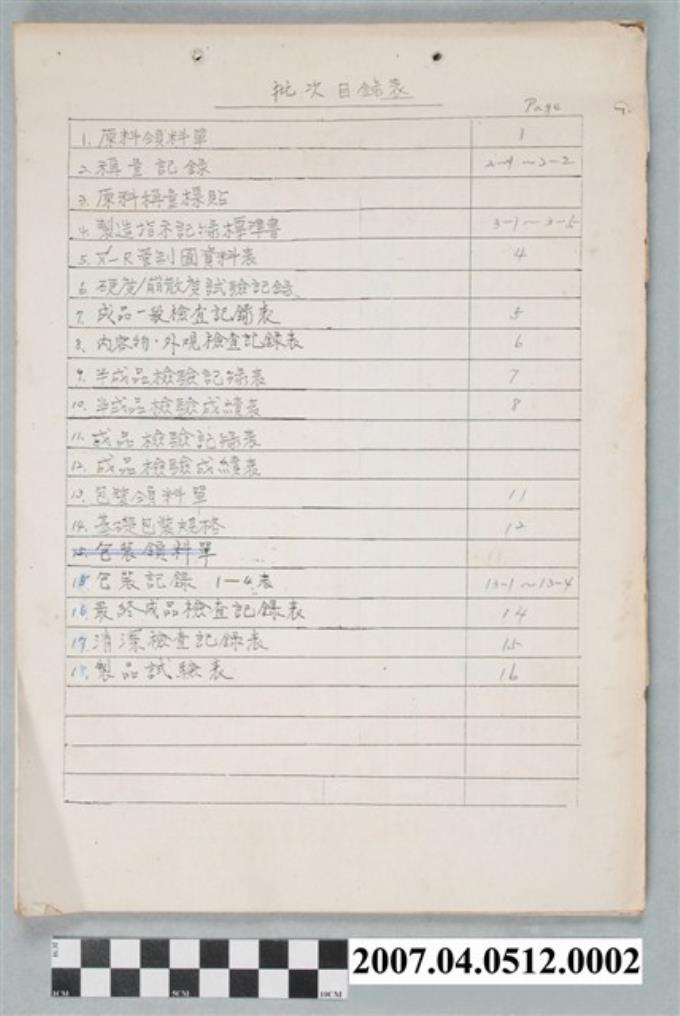 批次目錄表
Page
1. 原料領料單 1
2. 稱量記錄 2-1~2-2
3. 原料稱量標貼
4. 製造指示記錄標準書 3-1~3-5
5. X-R管制圖資料表 4
6. 硬度/崩散度試驗記錄
7. 成品一般檢查記錄表 5
8. 內容物·外觀檢查記錄表 6
9. 半成品檢驗記錄表 7
10. 半成品檢驗成績表 8
11. 成品檢驗記錄表
12. 成品檢驗成績表
13. 包裝領料單 11
14. 基礎包裝規格 12
15. 包裝領料單
15. 包裝記錄 1—4表 13-1~13-4
16. 最終成品檢查記錄表 14
17. 清潔檢查記錄表 15
18. 製品試驗表 16
1CM 5CM 10CM
2007.04.0512.0002